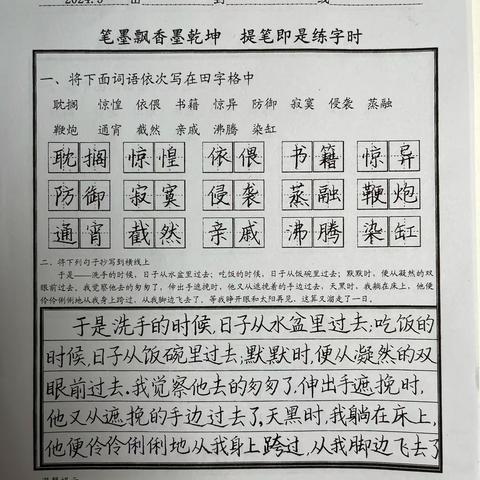 2024.3
笔墨飘香墨乾坤 提笔即是练字时
一、将下面词语依次写在田字格中
耽搁 惊惶 依偎 书籍 惊异 防御 寂寞 侵袭 蒸融
鞭炮 通宵 截然 亲戚 沸腾 染缸
耽搁 惊惶 依偎 书籍 惊异
防御 寂寞 侵袭 蒸融 鞭炮
通宵 截然 亲戚 沸腾 染缸
二、将下列句子抄写到横线上
于是——洗手的时候，日子从水盆里过去；吃饭的时候，日子从饭碗里过去；默默时，便从凝然的双
眼前过去。我觉察他去的匆匆了，伸出手遮挽时，他又从遮挽着的手边过去，天黑时，我躺在床上，他便
伶伶俐俐地从我身上跨过，从我脚边飞去了。等我睁开眼和太阳再见，这算又溜走了一日。
于是洗手的时候,日子从水盆里过去;吃饭的
时候,日子从饭碗里过去;默默时,便从凝然的双
眼前过去.我觉察他去的匆匆了,伸出手遮挽时,
他又从遮挽的手边过去了,天黑时,我躺在床上,
他便伶伶俐俐地从我身上跨过,从我脚边飞去了